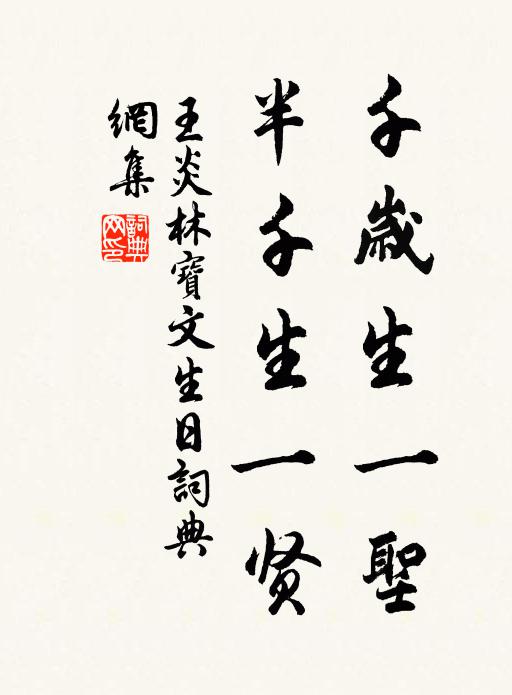 千歲生一聖
半千生一贤
王炎林寶文生日詞典
網集
詞典
网印